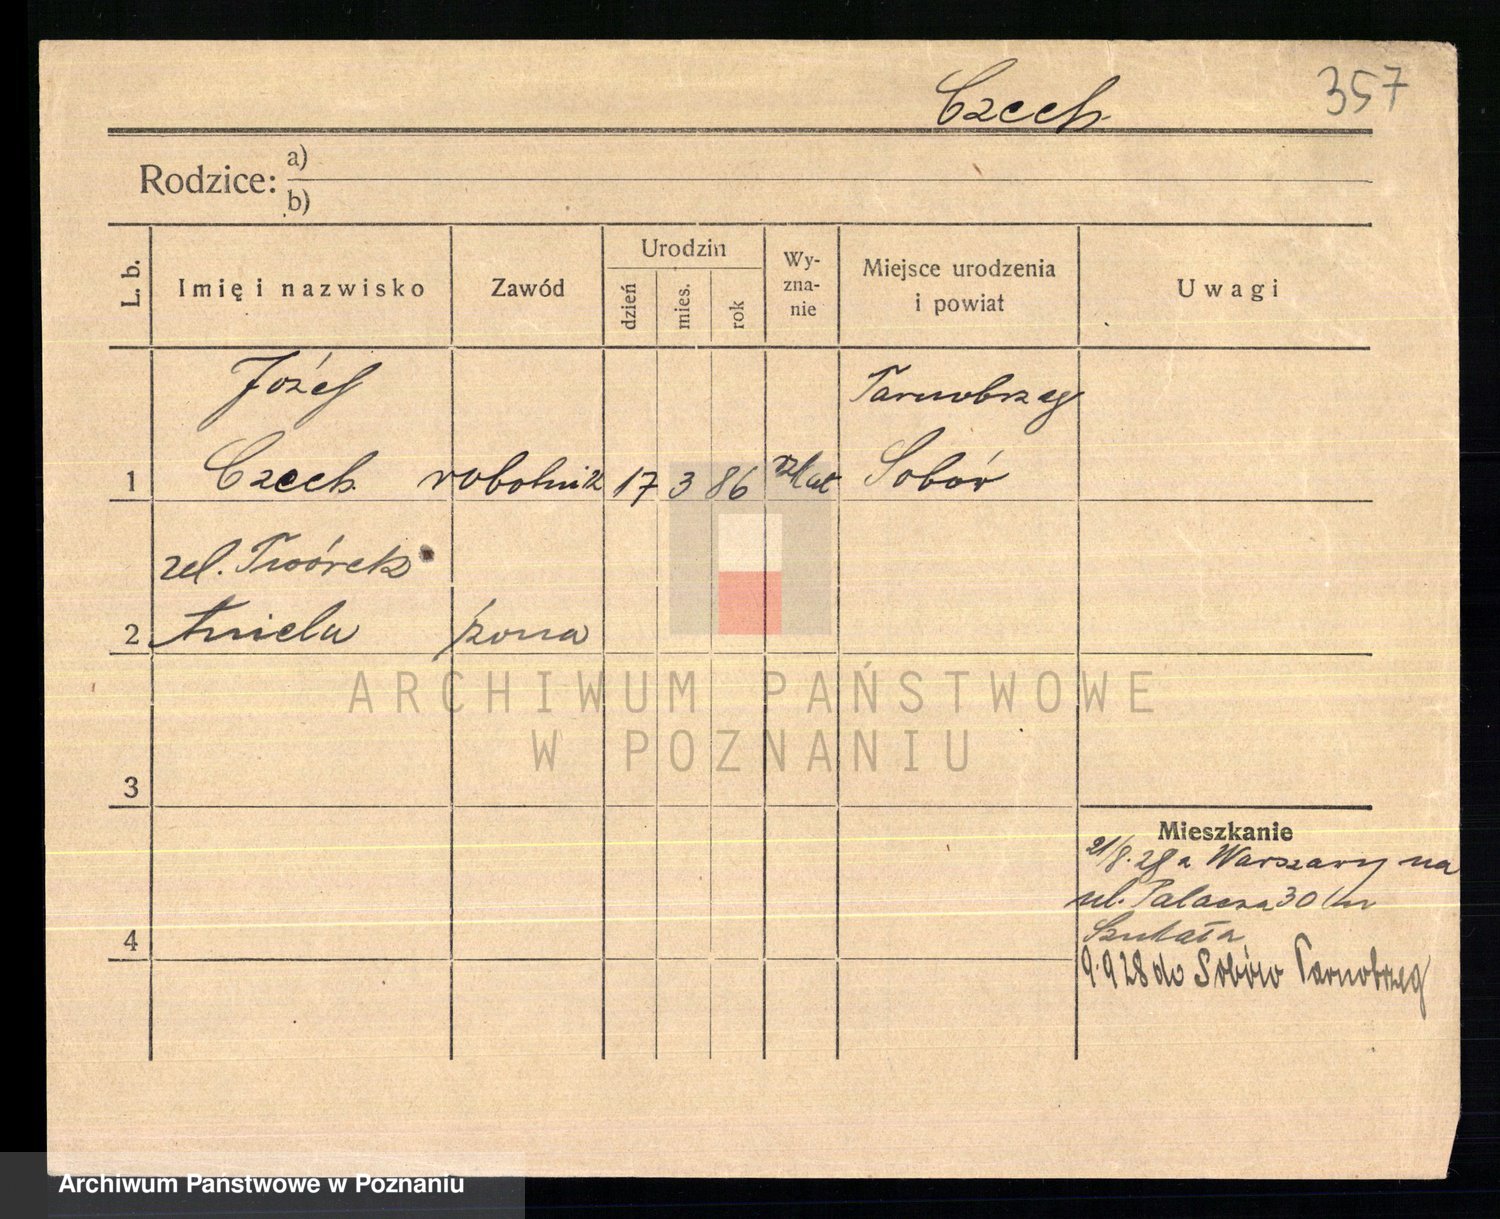 Czech 357
Rodzice: a)
b)
L. b. Imię i nazwisko Zawód Urodzin dzień mies. rok Wy-zna-nie Miejsce urodzenia i powiat Uwagi
Józef Tarnobrzeg
1 Czech robotnik 17 3 86 Sobór
zd. Twórek
2 Aniela żona
ARCHIWUM PAŃSTWOWE
W POZNANIU
3
Mieszkanie
21/8.28 z Warszawy na
ul. Palacza 30
4 Szukała
9.9 28 do Sobów Tarnobrzeg
Archiwum Państwowe w Poznaniu